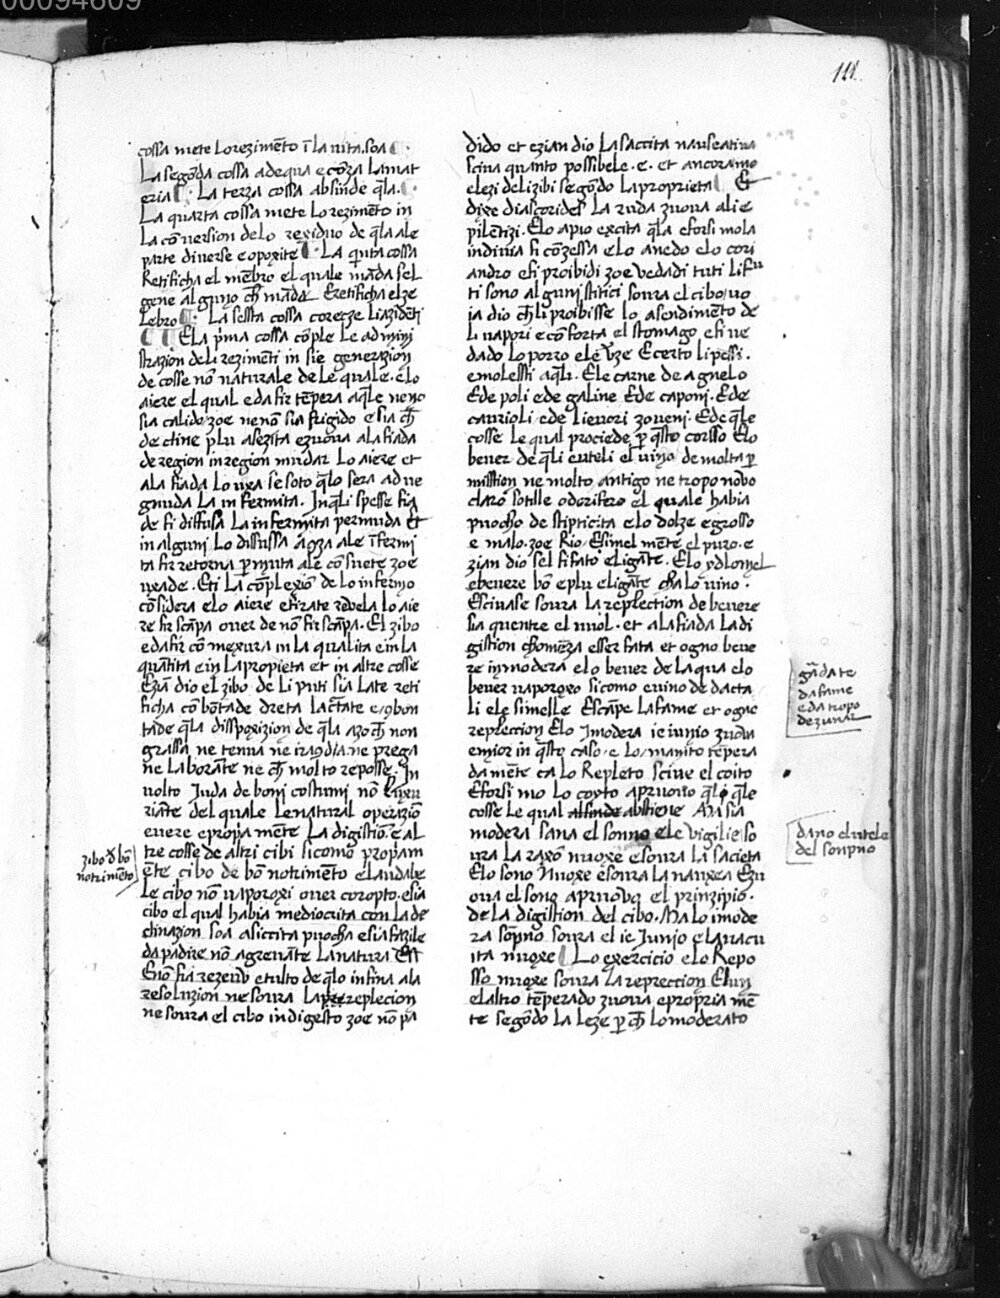 00094609
118
cossa mete lo rezimēto ī la uita soa
La segōda cossa adequa e cōza la mat
eria La terza cossa absinde q̄la
La quarta cossa mete lo rezimēto in
la cōuersion de lo residuo de q̄la ale
parte diuerse e opoxite La quīta cossa
Retificha el mēbro el quale māda sel
gene alguno ch̄ māda Eretificha elze
lebro La sessta cossa coregze li azidēti
E la p̄ma cossa cōple le admini
strazion de li rezimēti in sie generazion
de cosse nō naturale de le quale elo
aiere el qual e da fir tēpera aq̄le ne nō
sia calido zoe ne nō sia frigido e sia ch̄
de cline p̄lu a sezita e zuoua ala fiada
de region in region mudar lo aiere et
ala fiada lo uxa se soto q̄lo sera adue
gnuda la infermita. In q̄li spesse fia
de si diffusa la infermita permuda et
in alguni lo diffussa āꝓza ale īfermi
ta fir retorna p̄muta ale cōsuete zoe
uxade. Eti la cōplexiō de lo infermo
cōsidera elo aiere
re fir scāpa ouer de nō fir scāpa. El zibo
e da fir cō mexura in la qualita e in la
quātita e in la propieta et in altre cosse
Eziā dio el zibo de li puti sia late reti
ficha cō bōtade dreta lactāte
tade q̄la dissposizion de q̄la azo ch̄ non
grassa ne tenua ne ne prega
ne laborāte ne ch̄ molto reposse. In
uolto luda de boni costumi nō
riāte del quale lenatural operaziō
euere epropia mente La digistiō e al
tre cosse de altri cibi sicomo propiam
ēte cibo de bō notrimēto e laudabe
le cibo nō uaporoxi ouer coropto e sia
cibo el qual habia mediocrita con la de
clinazion soa a siccita puocha e sia fazile
da padire nō agreuāte la natura
fia rezeuo e tulto de q̄lo infina ala
resoluzion ne soura la replecion
ne soura el cibo indigesto zoe nō pa
zibo d bō
notrimēto
dido et ezian dio la saccita nauseatiua
sciua quanto possibele e et ancoramo
elezi deli zibi segōdo la proprieta Et
dixe diascorides la ruda zuoua ali e
pilētizi. Elo apio excita q̄la e forsi mola
indiuia fi cōzessa elo anedo elo cori
andro e fi proibidi zoe uedadi tuti li fru
ti sono alguni stitici soura el cibo uo
ia dio ch̄ li proibisse lo asendimēto de
li uapori e cōforta el stomago e fi ue
dado lo porro ele uze E certo li pessi.
e molessti aq̄li. Ele carne de agnelo
Ede poli ede galine Ede caponi. Ede
caurioli ede lieuori zoueni. Ede q̄le
cosse le qual prociede p̄ q̄sto corsso Elo
beuer de q̄li eutele el uino de molta p̄
misstion ne molto antigo ne tropo nouo
claro sotile odorifero el quale habia
puocho de stipticita elo dolze egrosso
e malo zoe Rio Esimel mēte el puro e
zian dio sel fi fato eligāte. Elo ydlomel
ebeuere bō e plu eligāte cha lo uino.
Esciuase soura la replection de beuere
sia quentre el uuol. et ala fiada la di
gistion chomēza esser fata et ogno beue
re inmodera elo beuer de laqua elo
beuer uaporoxo sicomo euino de dacta
li ele simelle Escāpe la fame et ogne
replection Elo Imodera ieiunio zuoua
emior in q̄sto caso e lo manito tēpera
damēte ca lo Repleto sciue el coito
Eforsi mo lo coyto apruouo q̄lo q̄le
cosse le qual abstiene Ma sia
modera sana el sonno ele uigilie so
ura la raxō nuoxe esoura la sacieta
Elo sono Nuoxe esoura la nauxea Ezu
oua el sono apruouo el prinzipio.
de la digistion del cibo. Ma lo imode
ra sōpno soura el ieiunio e la uacu
ita nuoxe Lo exercicio elo Repo
sso nuoxe soura la repreccion
elastro tēperado zuoua epropria mē
te segōdo la leze p̄ ch̄ lo moderato
gādate
da fame
e da tropo
dezunar
dano el utele
del sonpno